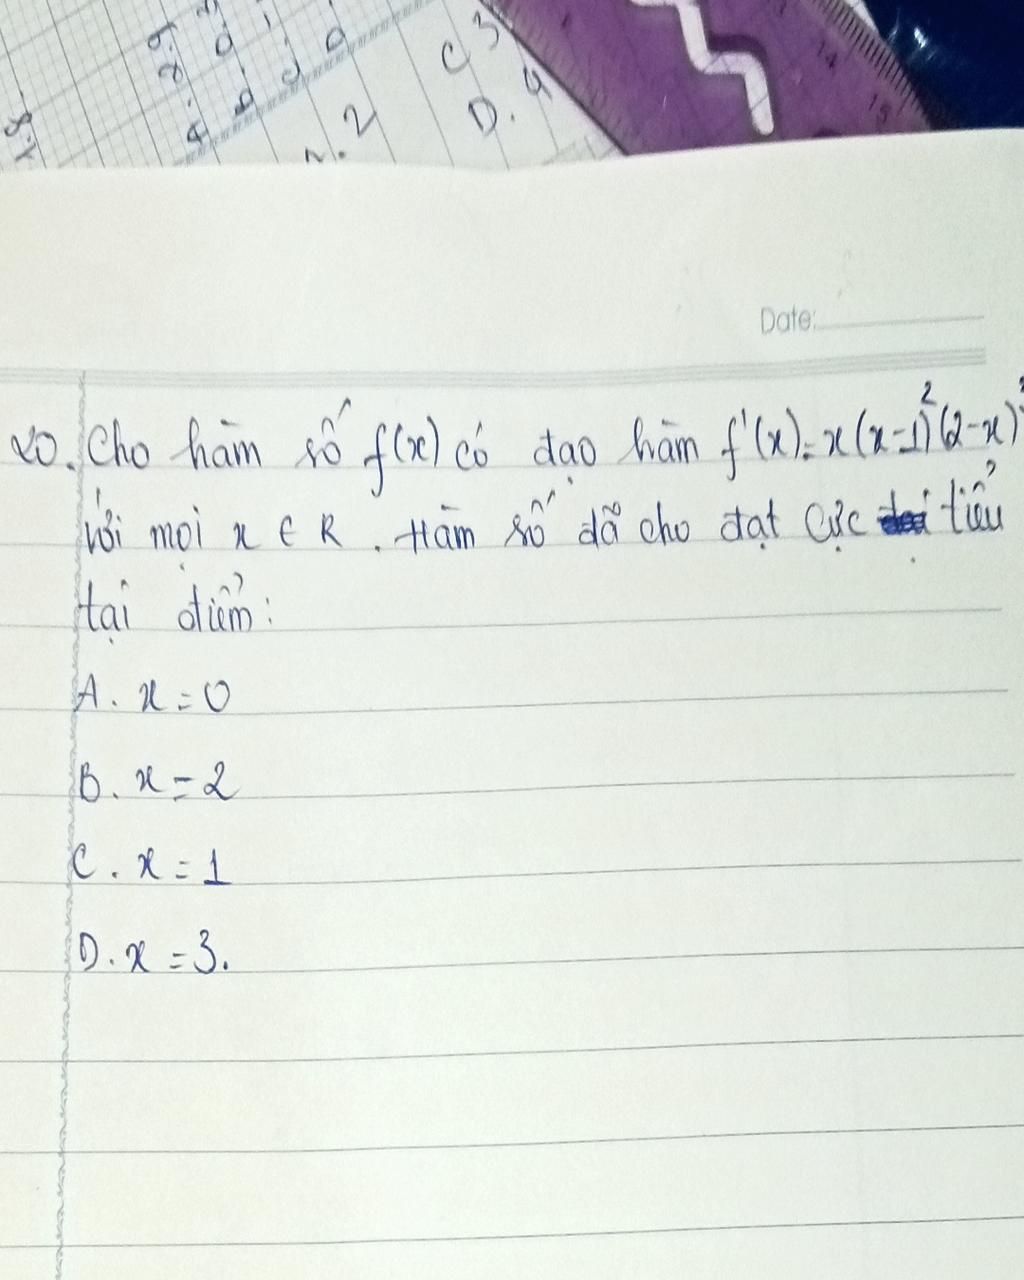 C 3
D. 4
2
Date:
20. Cho hàm số f(x) có đạo hàm f'(x) = x(x-1)²(2-x)
với mọi x ∈ R. Hàm số đã cho đạt cực tiểu
tại điểm:
A. x = 0
B. x = 2
C. x = 1
D. x = 3.